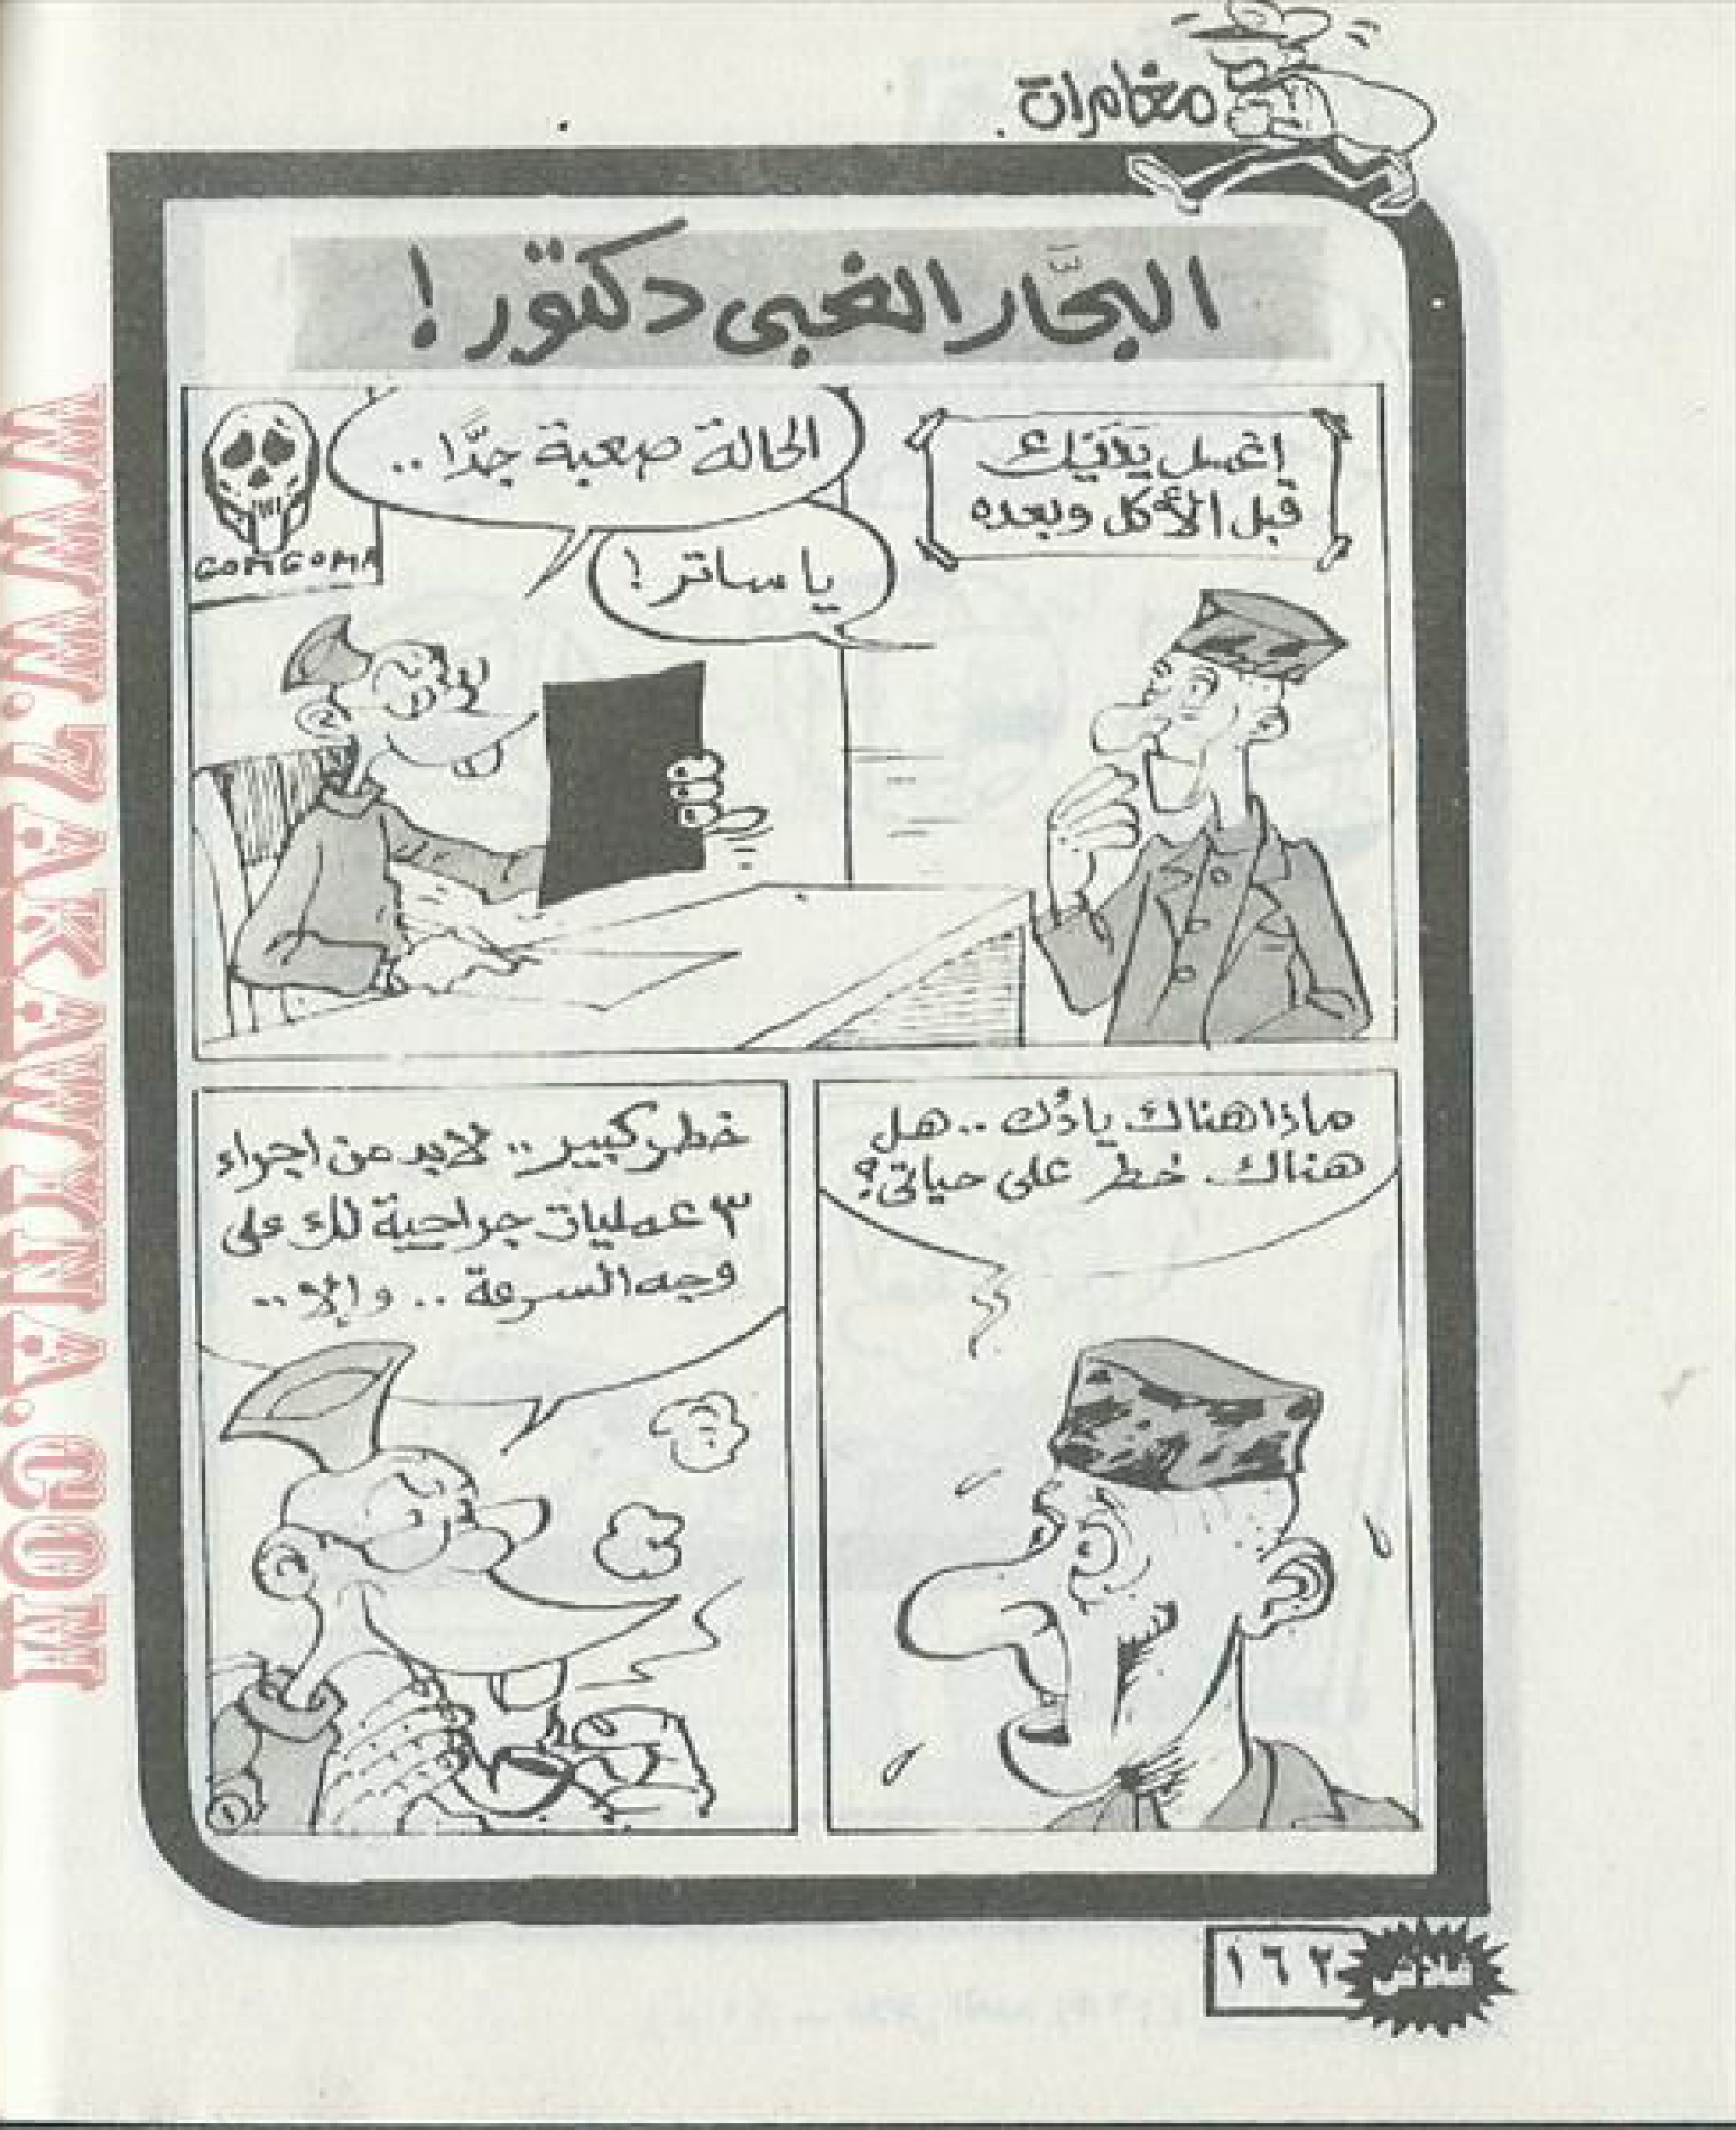 مغامرات
البحَّار الغبى دكتور !
إغسل يَدَيْك
قبل الأكل وبعده
الحالة صعبة جدًّا ..
يا ساتر !
GOMGOMA
ماذا هناك يا دُك .. هل
هناك خطر على حياتى ؟
خطر كبير .. لابد من اجراء
٣ عمليات جراحية لك على
وجه السرعة .. وإلا ..
فلاش
١٦٢
WWW.7AKAWITNA.COM